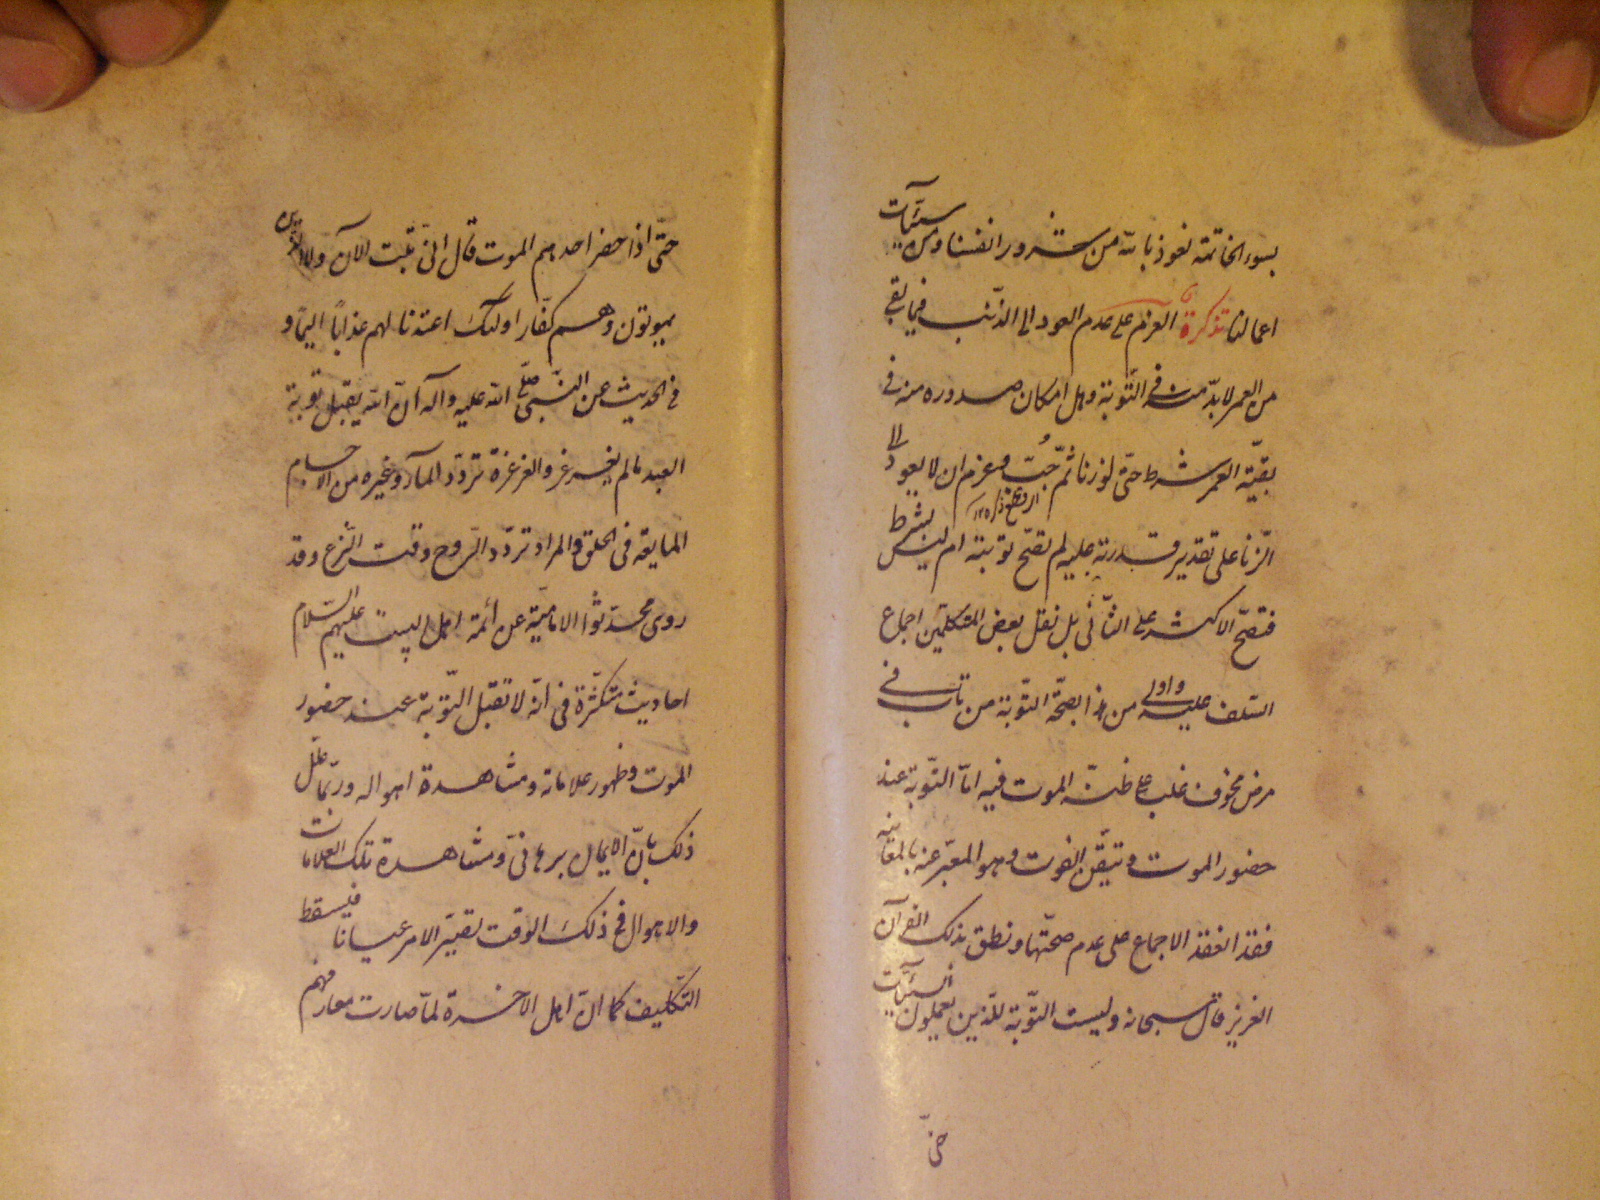 بسوء الخاتمة نعوذ بالله من شرور انفسنا ومن سيّئات
اعمالنا تذكرة العزم على عدم العود الى الذّنب فيما بقى
من العمر لا بدّ منه فى التّوبة وهل امكان صدوره منه فى
بقيّة العمر شرط حتّى لو زنا ثمّ جُبّ وعزم ان لا يعود الى
الزّنا على تقدير قدرته عليه لم تصّح توبته ام ليس بشرط
فتصّح الاكثر على الثّانى بل نقل بعض المتكلّمين اجماع
السّلف عليه واولى من هذا بصحّة التّوبة من تاب فى
مرض مخوف غلب على ظنّه الموت فيه امّا التّوبة عند
حضور الموت وتيقّن الفوت وهو المعبّر عنه بالمعاينه
فقد انعقد الاجماع على عدم صحّتها ونطق بذلك القرآن
العزيز قال سبحانه وليست التّوبة للّذين يعملون السّيّئات
حتّى
حتّى اذا حضر احدهم الموت قال انّى تبت الآن ولا الّذين
يموتون وهم كفّار اولئك اعتدنا لهم عذابًا اليمًا و
فى الحديث عن النّبى صلّى الله عليه وآله انّ الله يقبل توبة
العبد ما لم يغرغر والغرغرة تردّد الماء وغيره من الاجسام
المايعة فى الحلق والمراد تردّد الرّوح وقت النّزع وقد
روى محدّثوا الاماميّة عن ائمّة اهل البيت عليهم السّلام
احاديث متكثّرة فى انّه لا تقبل التّوبة عند حضور
الموت وظهور علاماته ومشاهدة اهواله وربّما علّل
ذلك بانّ الايمان برهانىّ ومشاهدة تلك العلامات
والاهوال فى ذلك الوقت تصيّر الامر عيانا فيسقط
التّكليف كما انّ اهل الاخرة لمّا صارت معارفهم